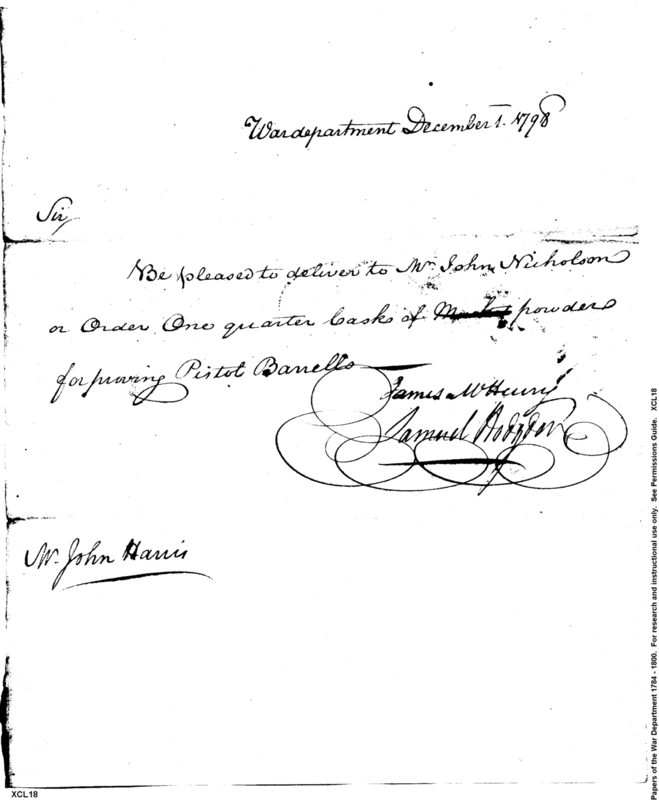 War department December 1. 1798
Sir,
Be pleased to deliver to Mr John Nicholson
or Order One quarter Casks of powder
for proving Pistol Barrells
James McHenry
Samuel Hodgdon
Mr. John Harris
XCL18
Papers of the War Department 1784 - 1800. For research and instructional use only. See Permissions Guide. XCL18